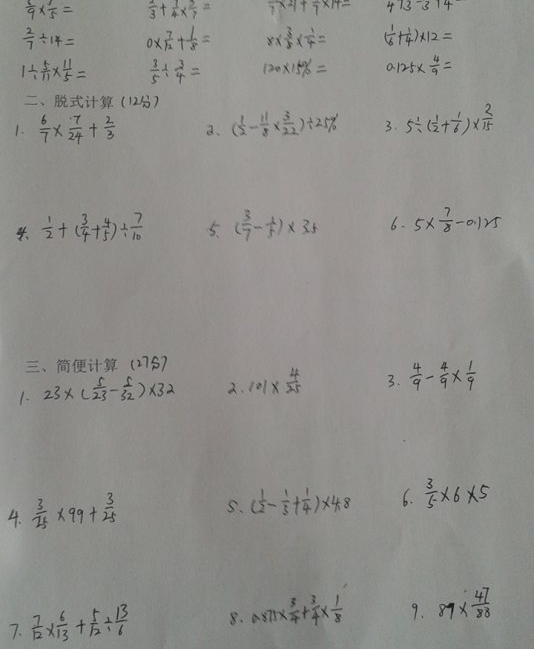 2/7÷14= 0×7/12+1/8= 8×3/8×3/4= (1/6+3/4)×12=
1÷5/11×11/5= 3/5÷3/4= 120×15%= 0.125×4/9=
二、脱式计算 (12分)
1. 6/7×7/24+2/3 2. (1/2-11/8×3/22)÷25% 3. 5÷(1/2+1/6)×2/15
4. 1/2+(3/4+4/5)÷7/10 5. (3/7-1/5)×35 6. 5×7/8-0.125
三、简便计算 (27分)
1. 23×(5/23-5/32)×32 2. 101×4/25 3. 4/9-4/9×1/9
4. 3/25×99+3/25 5. (1/2-1/3+1/4)×48 6. 3/5×6×5
7. 7/12×6/13+5/12÷13/6 8. 0.875×3/4+3/4×1/8 9. 89×47/88